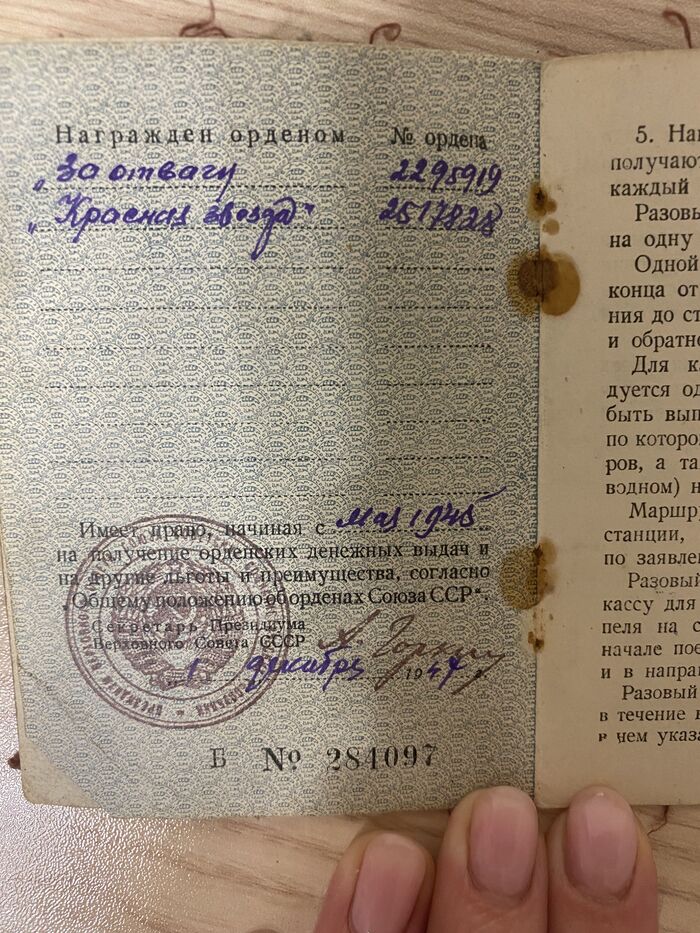 Награжден орденом № ордена
„За отвагу 2295919
„Красная звезда" 2517828
Имеет право, начиная с мая 1945
на получение орденских денежных выдач и
на другие льготы и преимущества, согласно
„Общему положению об орденах Союза ССР".
Секретарь Президиума
Верховного Совета СССР А. Горкин
1 декабря 1947 г.
Б № 284097
5. На
получаю
каждый
Разовы
на одну
Одной
конца от
ния до ст
и обратно
Для к
дуется од
быть вып
по которо
ров, а та
водном) н
Маршру
станции,
по заявле
Разовый
кассу для
пеля на с
начале пое
и в направ
Разовый
в течение
в нем указа